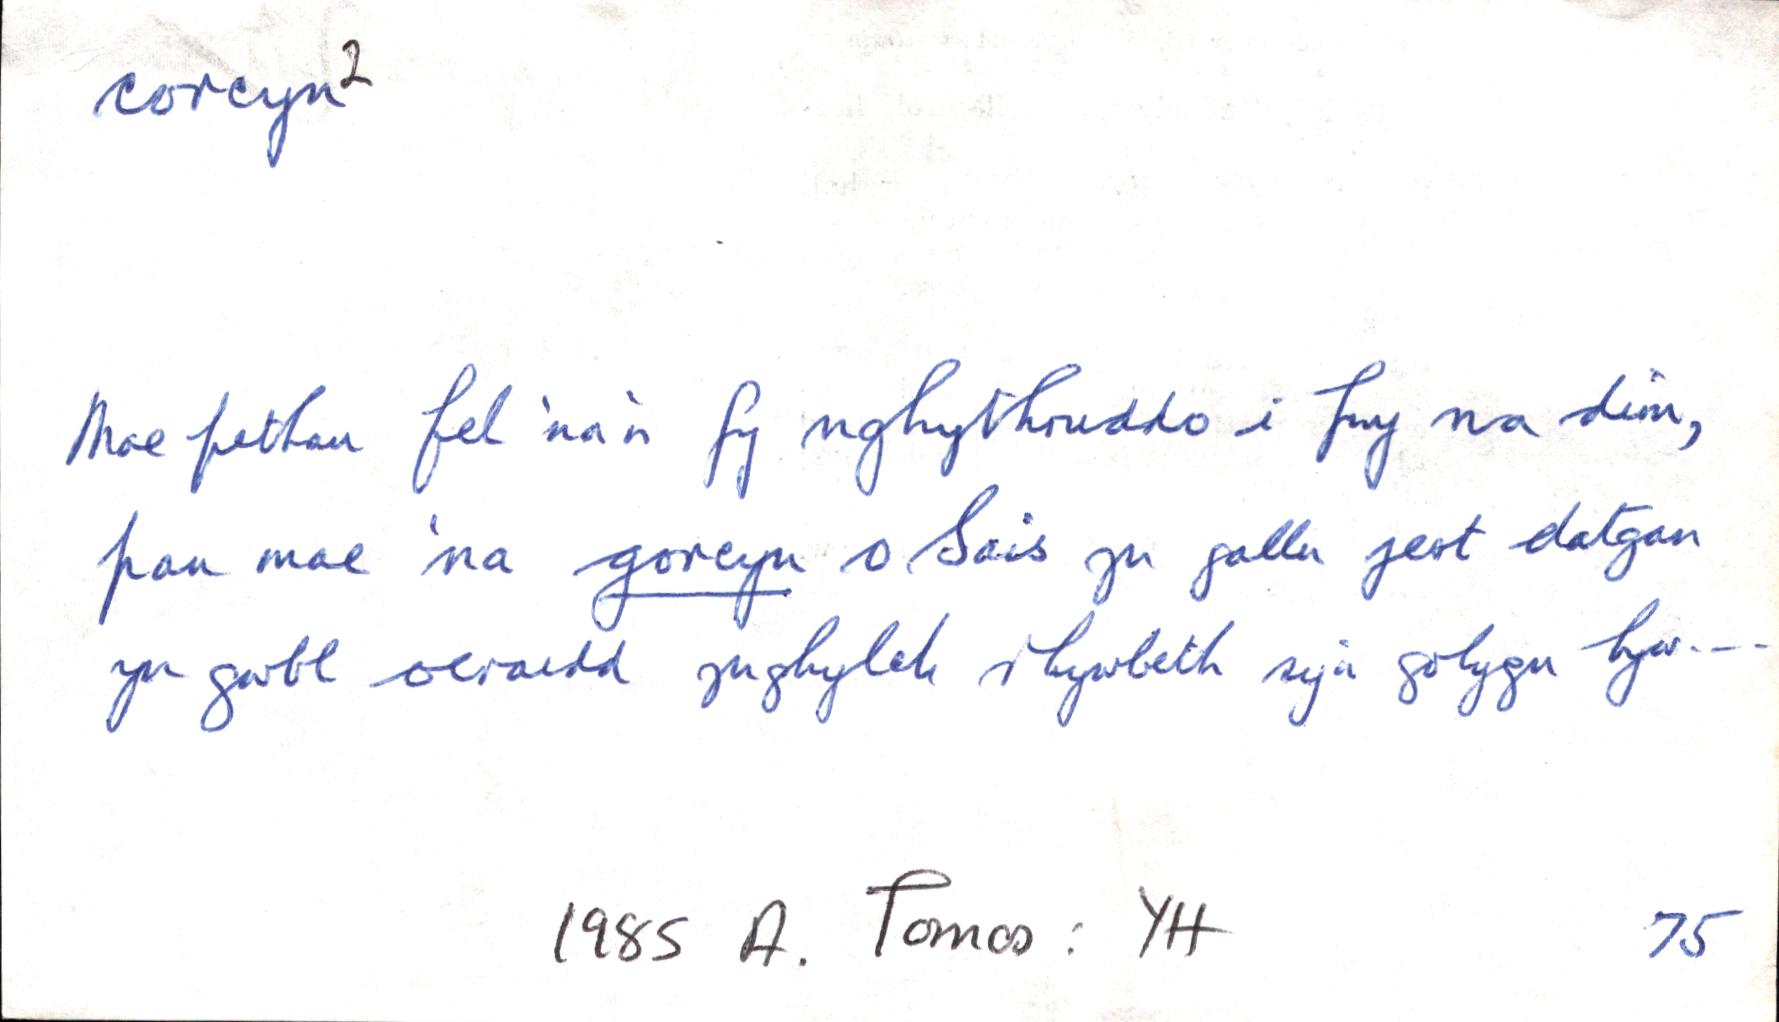 corcyn²
Mae pethau fel 'na'n fy nghythruddo i fwy na dim,
pan mae 'na gorcyn o Sais yn gallu jest datgan
yn gwbl oeraidd ynghylch rhywbeth sy'n golygu byw----
1985 A. Tomos: YH 75